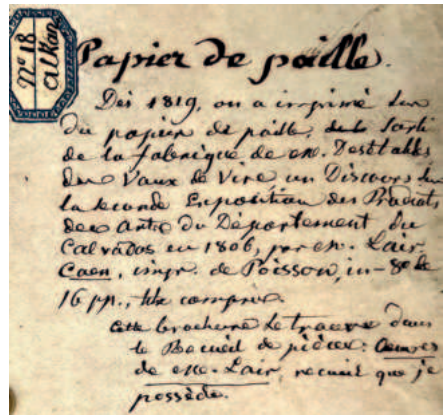 nº 18
alkan
Papier de paille.
Dès 1819, on a imprimé sur
du papier de paille, sorti
de la fabrique de M. Desétables
des Vaux de Vire un Discours sur
la seconde Exposition des Produits
des Arts du Département du
Calvados en 1806, par M. Lair
Caen, impr. de Poisson, in-8º de
16 pp., titre compris.
Cette brochure se trouve dans
le Recueil de pièces: Oeuvres
de M. Lair, recueil que je
possède.